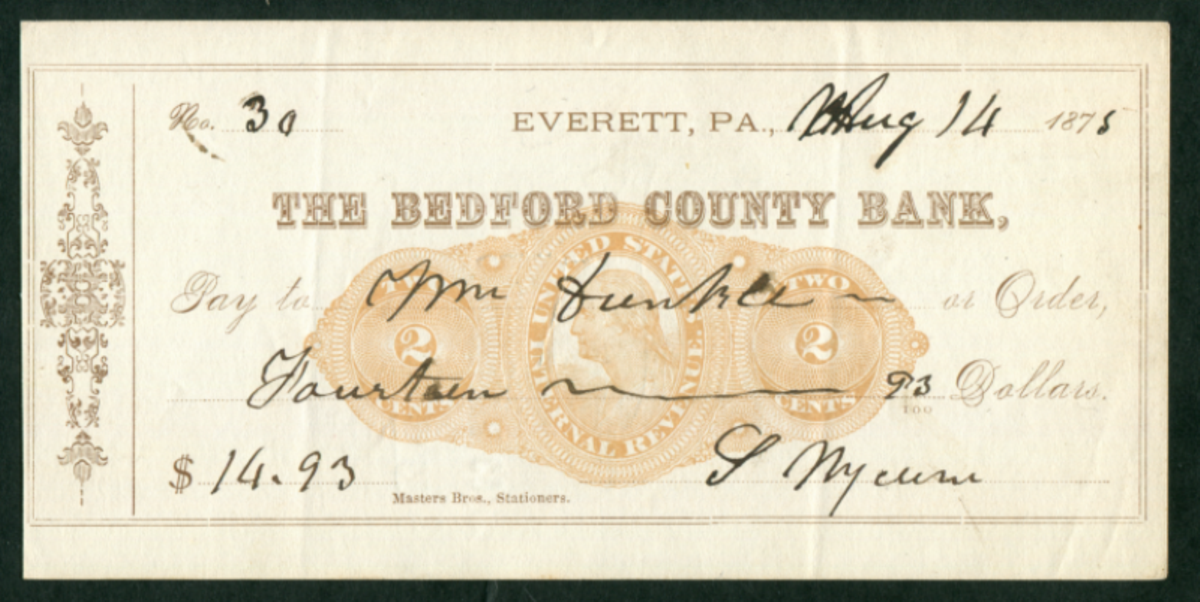 No. 30 EVERETT, PA., Aug 14 1875
THE BEDFORD COUNTY BANK,
Pay to Wm Dunkle or Order,
Fourteen 93/100 Dollars.
$ 14.93
S
Masters Bros., Stationers.
UNITED STATES INTERNAL REVENUE.
TWO 2 CENTS
TWO 2 CENTS